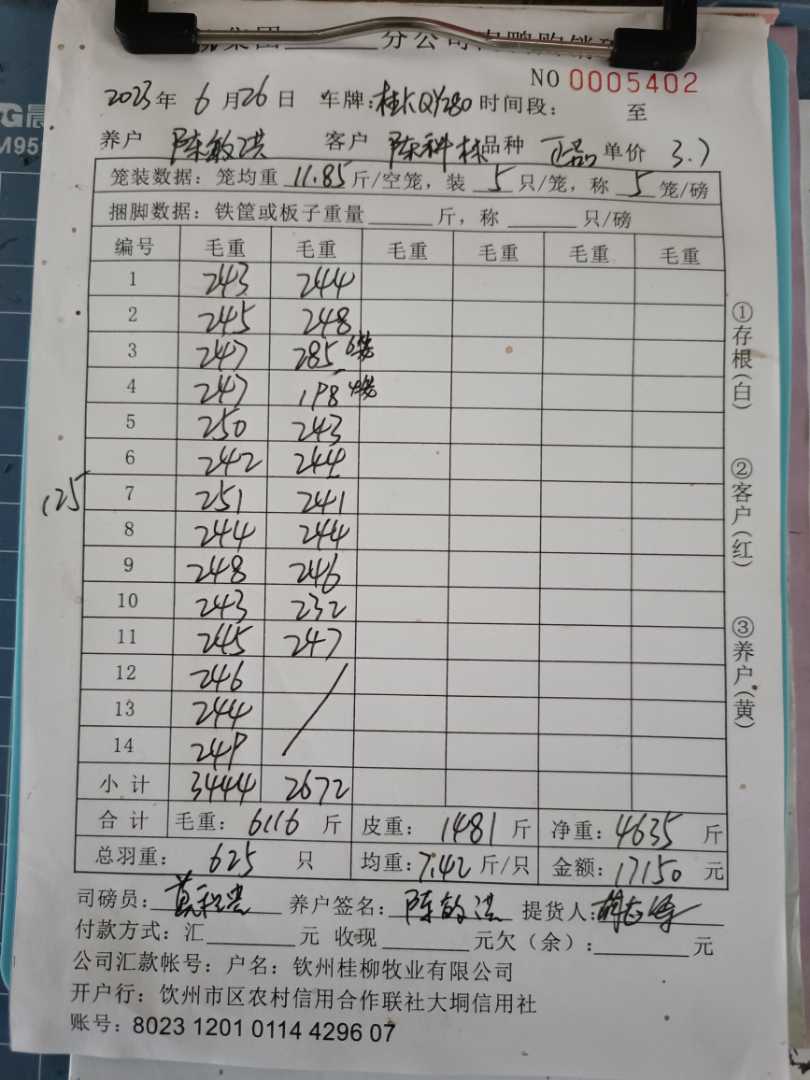 集团______分公司肉鸭购销
NO 0005402
2023年 6月26日 车牌:桂KQY280 时间段: 至
养户 陈敏洪 客户 陈科林 品种 正品 单价 3.7
笼装数据: 笼均重 11.85 斤/空笼, 装 5 只/笼, 称 5 笼/磅
捆脚数据: 铁筐或板子重量______斤, 称______只/磅
编号 毛重 毛重 毛重 毛重 毛重 毛重
1 243 244
2 245 248
3 247 285 6笼
4 247 198 4笼
5 250 243
6 242 244
125
7 251 241
8 244 244
9 248 246
10 243 232
11 245 247
12 246
13 244
14 249
小计 3444 2672
合计 毛重: 6116 斤 皮重: 1481 斤 净重: 4635 斤
总羽重: 625 只 均重: 7.42 斤/只 金额: 17150 元
司磅员: 养户签名: 陈敏洪 提货人:
付款方式: 汇______元 收现______元欠(余):______元
公司汇款帐号: 户名: 钦州桂柳牧业有限公司
开户行: 钦州市区农村信用合作联社大垌信用社
账号: 8023 1201 0114 4296 07
①存根(白)
②客户(红)
③养户(黄)